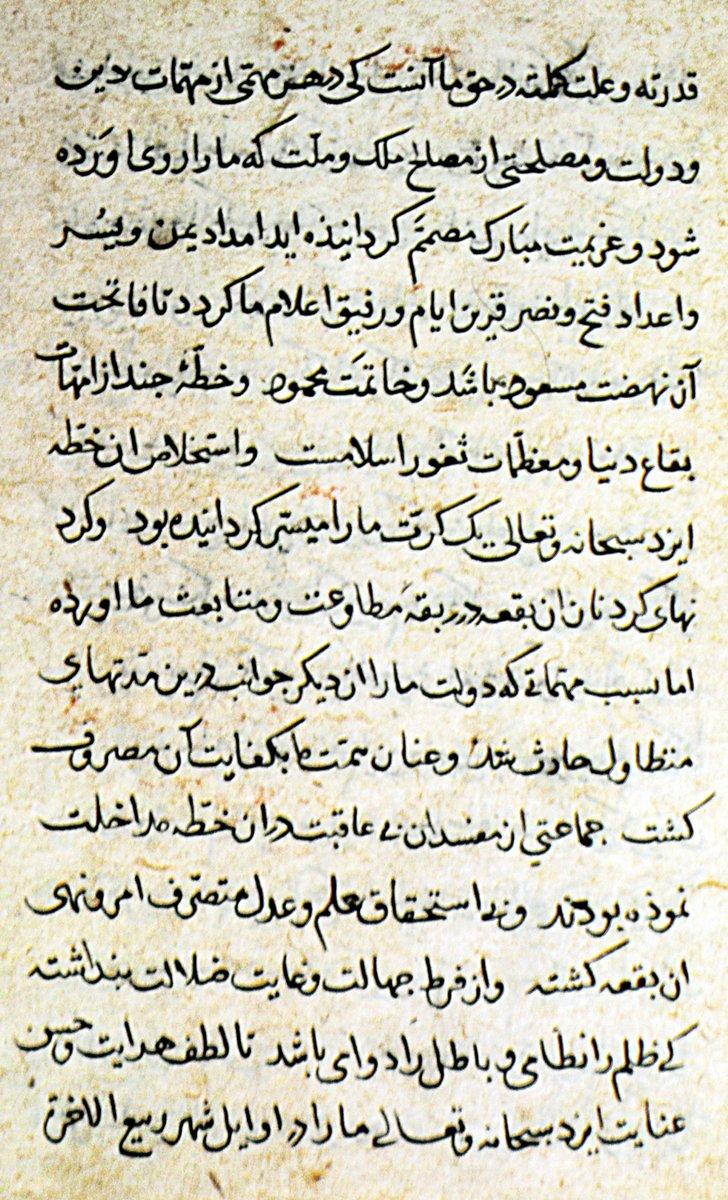 قدرته و علت کلمته در حق ما آنست کی در هر مهمّی از مهمّات دین
و دولت و مصلحتی از مصالح ملک و ملّت که ما را روی اوَرَده
شود و عزیمت مبَارک مصممَّ کردانیذه ایدا مداد یمن و یسُر
و اعداد فتح و نصر قرین ایام و رفیق اعلام ما کردد تا فاتحت
آن نهضت مسعود باشَد و خاتمَت محمود و خطّهٔ جند از امّهات
بقاع دنیا و معظّمات ثغور اسلامست و استخلاص ان خطّه
ایزد سبحانه و تعالی یک کرّت ما را میسّر کردانیده بود و کرد
نهای کردنان ان بقعه در ربقهَ مطاوعت و متابعت ما اورده
اما بسبب مهمّاتی که دولت ما را از دیکر جوانب درین مدّتهای
متطاول حادث شد و عنان همّت ما بکفایت آن مصروف
کشت جماعتی از مفسدان بی عاقبت در ان خطّه مداخلت
نموذه بودند و بی استحقاق علم و عدل متصّرف امر و نهی
ان بقعه کشته و از فرط جهالت و غایت ضلالت بنداشتهَ
کی ظلم را نظامی و باطل رَا دوامی باشد تا لطف هدایت و حسن
عنایت ایزد سبحانه و تعالی ما را در اوایل شهر ربیع الاخرة